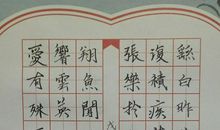 繇白昨
復積疾
張樂於
翔魚聞
響雲英
愛有殊